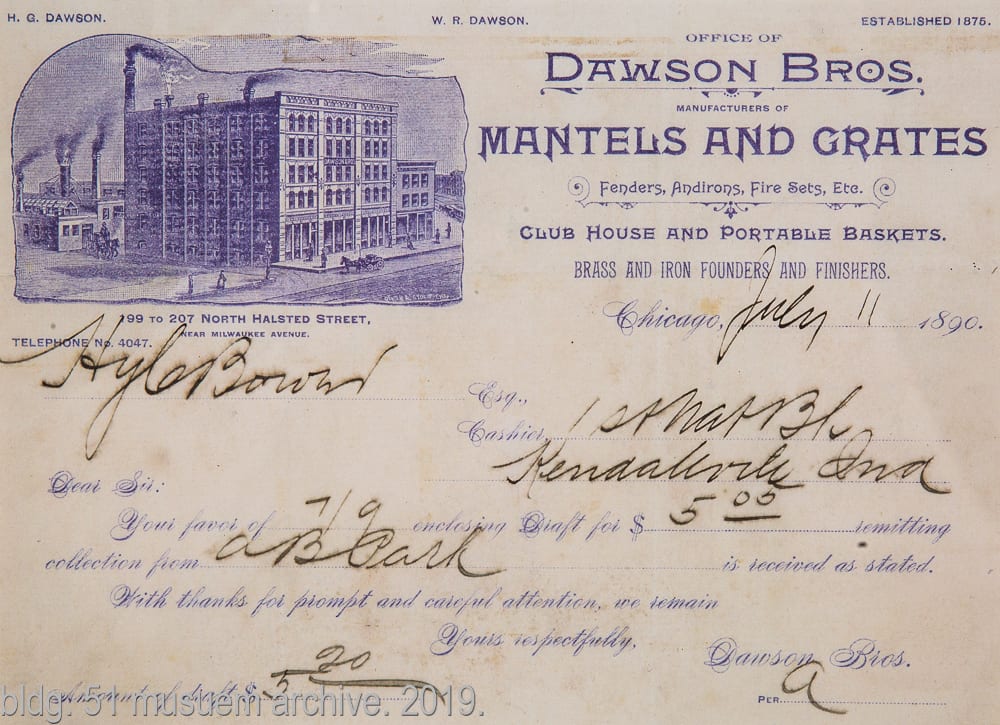 H. G. DAWSON.
W. R. DAWSON.
ESTABLISHED 1875.
OFFICE OF
DAWSON BROS.
MANUFACTURERS OF
MANTELS AND GRATES
Fenders, Andirons, Fire Sets, Etc.
CLUB HOUSE AND PORTABLE BASKETS.
BRASS AND IRON FOUNDERS AND FINISHERS.
DAWSON BROS
199 TO 207 NORTH HALSTED STREET,
NEAR MILWAUKEE AVENUE.
TELEPHONE No. 4047.
Chicago, July 11 1890.
Esq.,
Cashier, 1st Nat Bk
Kendallville Ind
Dear Sir:
Your favor of 7/9 enclosing Draft for $ 5 05 remitting
collection from A B Park is received as stated.
With thanks for prompt and careful attention, we remain
Yours respectfully,
Dawson Bros.
Amount of draft $ 5 20
PER
bldg. 51 musuem archive. 2019.